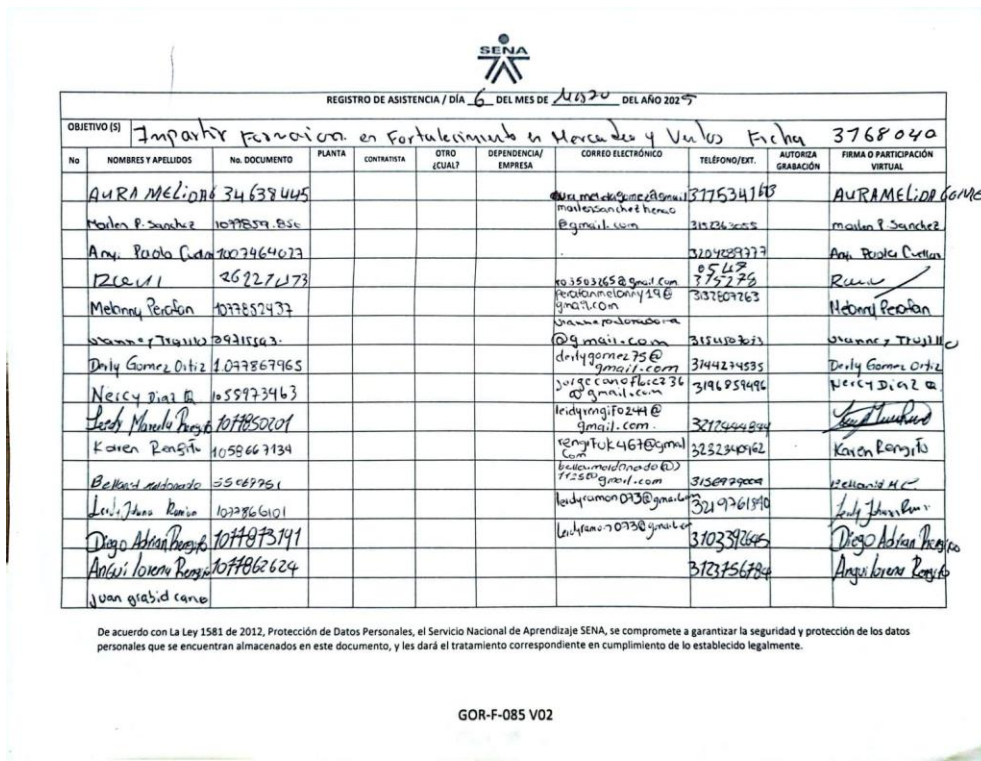 SENA
REGISTRO DE ASISTENCIA / DÍA 6 DEL MES DE Marzo DEL AÑO 2025
OBJETIVO (S) Impartir Formacion en Fortalecimiento en Mercadeo y Ventas Ficha 3768040
No NOMBRES Y APELLIDOS No. DOCUMENTO PLANTA CONTRATISTA OTRO ¿CUAL? DEPENDENCIA/ EMPRESA CORREO ELECTRÓNICO TELÉFONO/EXT. AUTORIZA GRABACIÓN FIRMA O PARTICIPACIÓN VIRTUAL
AURA MELIDA G 34638445 AURA MELIDA GOME
Marlen P. Sanchez 1077859.856 @gmail.com marlen P. Sanchez
Any. Paola 1007464027 3204289777 Any. Paola Cuellar
26227473 ro3503265@gmail.com
Melanny Perafan 1077852437 perafanmelanny19@gmail.com 3132807263 Melanny Perafan
Trujillo @gmail.com Trujillo
Derly Gomez Ortiz 1.077867965 derlygomez75@gmail.com 3144274535 Derly Gomez Ortiz
Neicy Diaz Q. 1055973463 jorgecanoflorez36@gmail.com 3196959496 Neicy Diaz Q.
Leidy Marcela Rengifo 1077850201 leidyrengifo244@gmail.com. 3212444844
Karen Rengifo 1058667134 rengifok467@gmail.com 3232340962 Karen Rengifo
Bellanid maldonado 55067751 @gmail.com 3156979009 Bellanid M.C.
Leidy Johana Ramon 1077866101 leidyramon073@gmail.com 3219761890
Diego Adrian Rengifo 1077873191 leidyramon073@gmail.com 3103392645 Diego Adrian Rengifo
Angui lorena Rengifo 1077862624 3123756784 Angui lorena Rengifo
Juan grabid cano
De acuerdo con La Ley 1581 de 2012, Protección de Datos Personales, el Servicio Nacional de Aprendizaje SENA, se compromete a garantizar la seguridad y protección de los datos
personales que se encuentran almacenados en este documento, y les dará el tratamiento correspondiente en cumplimiento de lo establecido legalmente.
GOR-F-085 V02